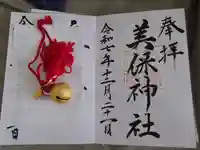 奉拝
美保神社
令和七年十二月二十一日